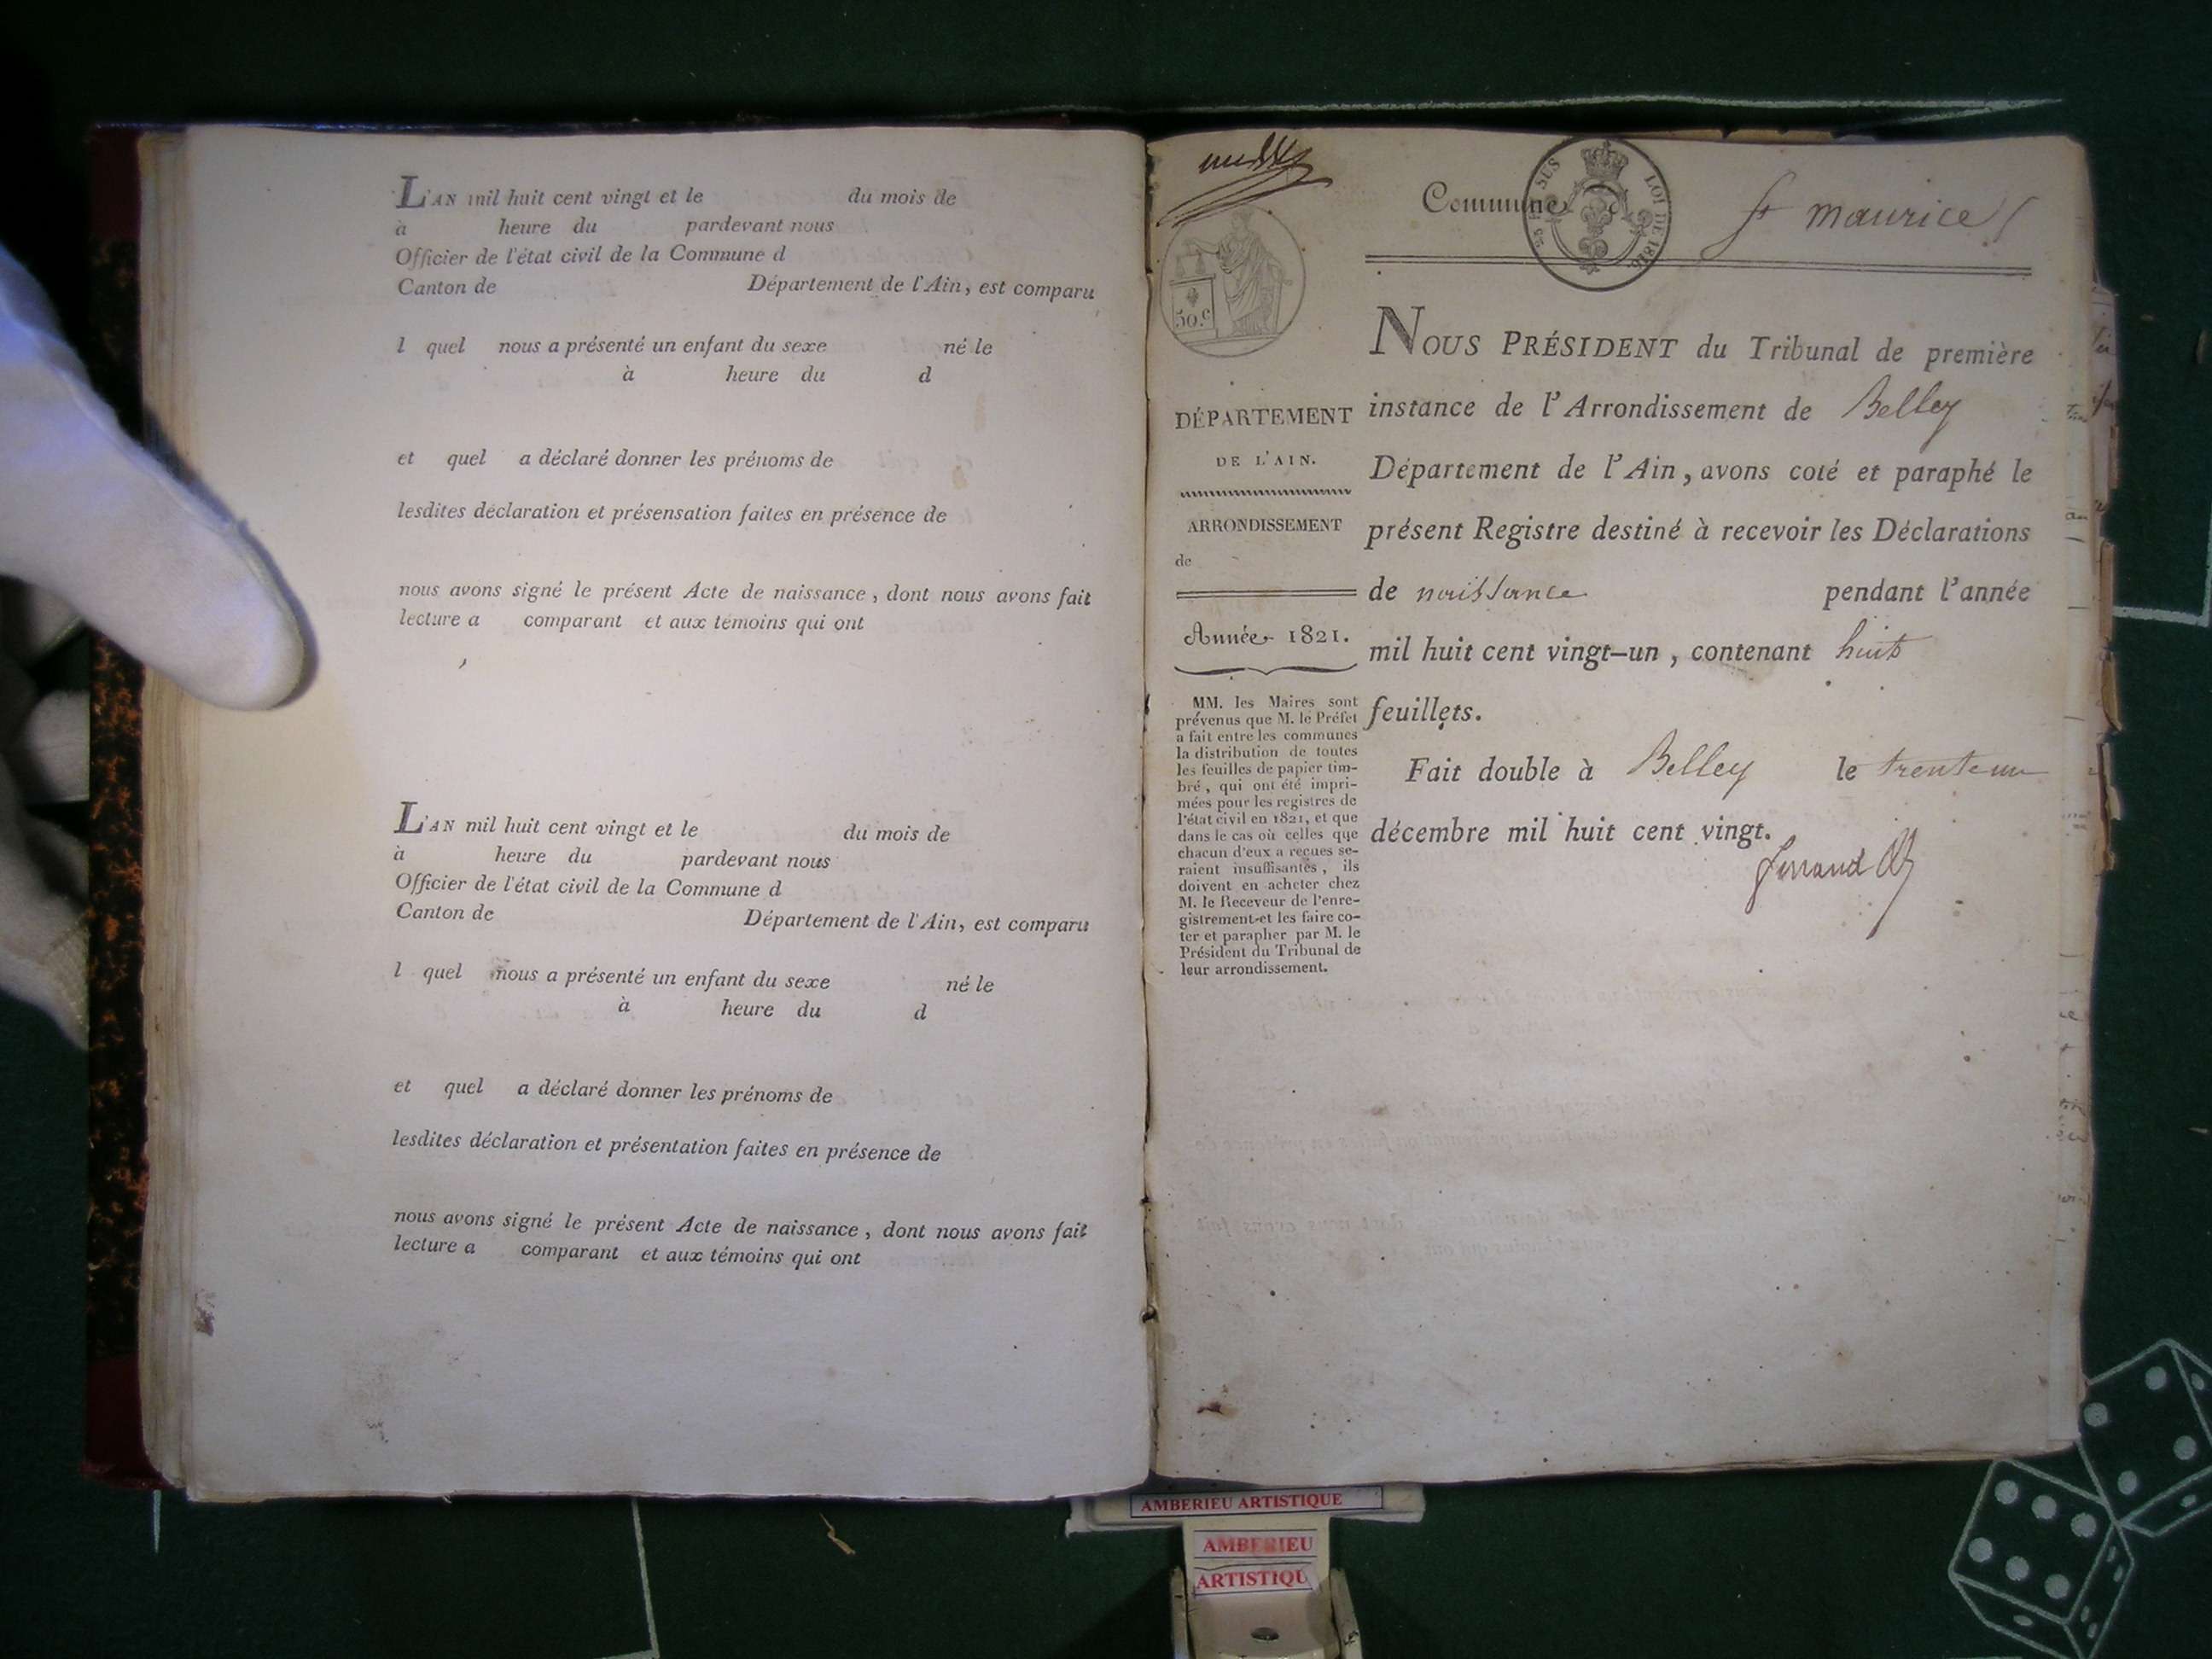 L'AN mil huit cent vingt et le du mois de
à heure du pardevant nous
Officier de l'état civil de la Commune d
Canton de Département de l'Ain, est comparu
l quel nous a présenté un enfant du sexe né le
à heure du d
et quel a déclaré donner les prénoms de
lesdites déclaration et présensation faites en présence de
nous avons signé le présent Acte de naissance, dont nous avons fait
lecture a comparant et aux témoins qui ont
L'AN mil huit cent vingt et le du mois de
à heure du pardevant nous
Officier de l'état civil de la Commune d
Canton de Département de l'Ain, est comparu
l quel nous a présenté un enfant du sexe né le
à heure du d
et quel a déclaré donner les prénoms de
lesdites déclaration et présentation faites en présence de
nous avons signé le présent Acte de naissance, dont nous avons fait
lecture a comparant et aux témoins qui ont
Commune St maurice
SUS LOI DE 1816
50.c
DÉPARTEMENT
DE L'AIN.
ARRONDISSEMENT
de
Année 1821.
MM. les Maires sont
prévenus que M. le Préfet
a fait entre les communes
la distribution de toutes
les feuilles de papier tim-
bré, qui ont été impri-
mées pour les registres de
l'état civil en 1821, et que
dans le cas où celles que
chacun d'eux a reçues se-
raient insuffisantes, ils
doivent en acheter chez
M. le Receveur de l'enre-
gistrement et les faire co-
ter et parapher par M. le
Président du Tribunal de
leur arrondissement.
NOUS PRÉSIDENT du Tribunal de première
instance de l'Arrondissement de Belley
Département de l'Ain, avons coté et paraphé le
présent Registre destiné à recevoir les Déclarations
de naissance pendant l'année
mil huit cent vingt-un, contenant huit
feuillets.
Fait double à Belley le trente un
décembre mil huit cent vingt.
AMBERIEU ARTISTIQUE
AMBERIEU
ARTISTIQU